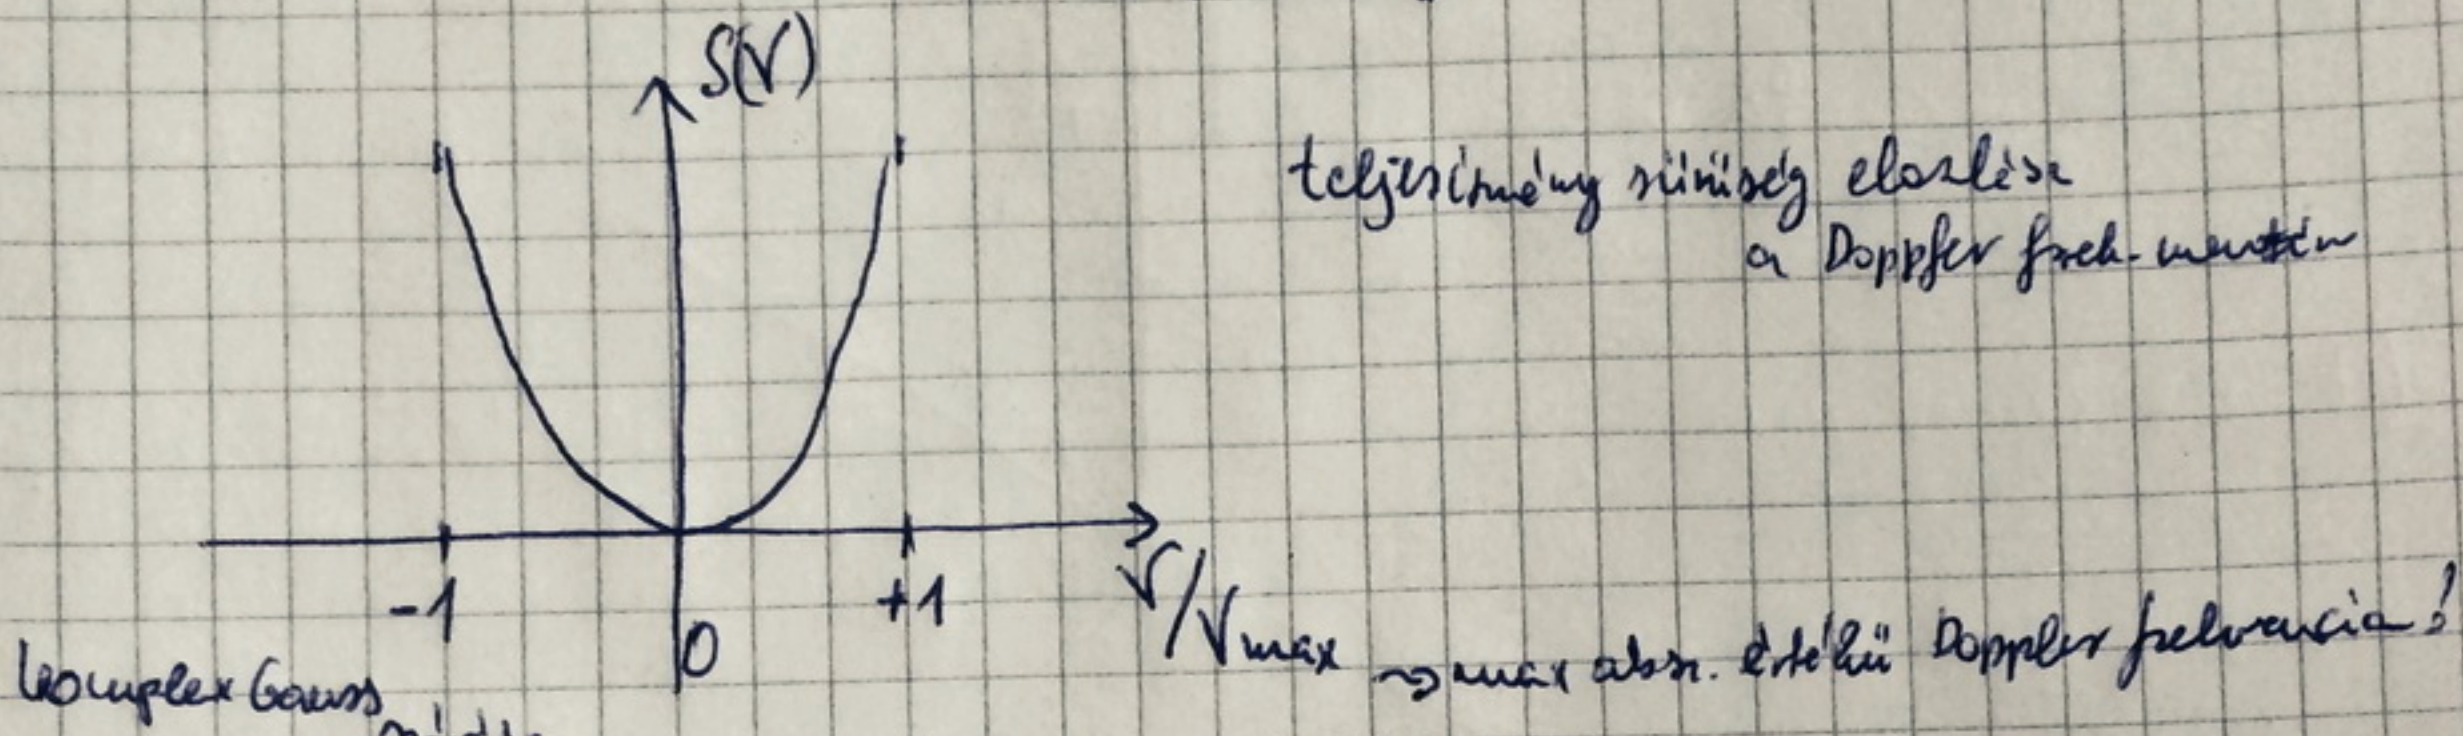 S(ν)
teljesítmény sűrűség eloszlása
a Doppler frek. mentén
-1
0
+1
ν/νmax → max absz. értékű Doppler frekvencia!
komplex Gauss